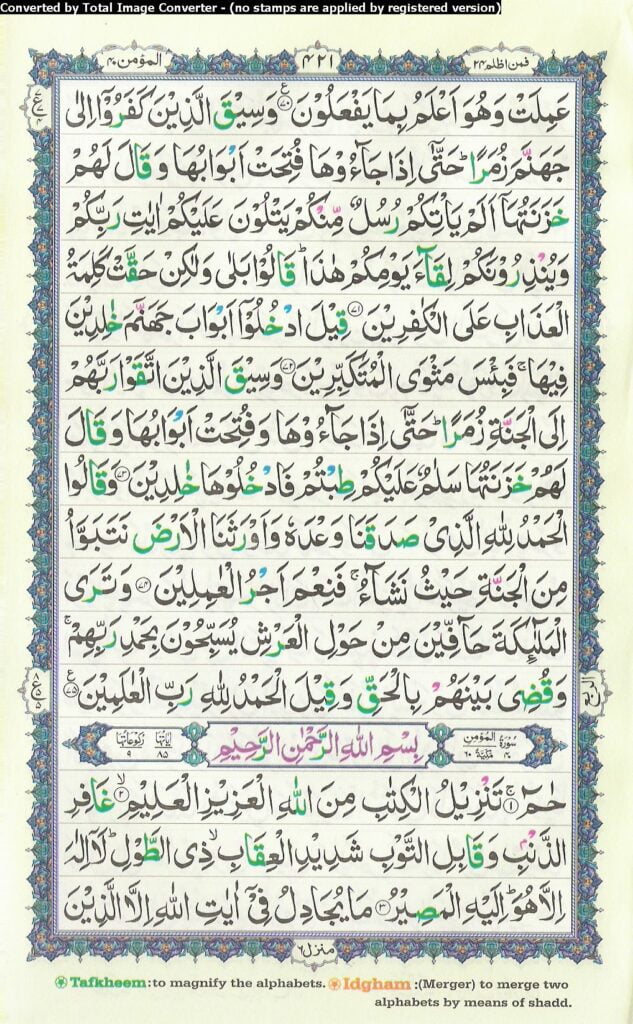 Converted by Total Image Converter - (no stamps are applied by registered version)
فمن اظلم ٢٤
٤٢١
المؤمن ٤٠
عَمِلَتْ وَهُوَ اَعْلَمُ بِمَا يَفْعَلُوْنَ ۞٧٠ وَسِيْقَ الَّذِيْنَ كَفَرُوْۤا اِلٰى
جَهَنَّمَ زُمَرًا ؕ حَتّٰۤى اِذَا جَآءُوْهَا فُتِحَتْ اَبْوَابُهَا وَقَالَ لَهُمْ
خَزَنَتُهَاۤ اَلَمْ يَاْتِكُمْ رُسُلٌ مِّنْكُمْ يَتْلُوْنَ عَلَيْكُمْ اٰيٰتِ رَبِّكُمْ
وَيُنْذِرُوْنَكُمْ لِقَآءَ يَوْمِكُمْ هٰذَا ؕ قَالُوْا بَلٰى وَلٰكِنْ حَقَّتْ كَلِمَةُ
الْعَذَابِ عَلَى الْكٰفِرِيْنَ ٧١ قِيْلَ ادْخُلُوْۤا اَبْوَابَ جَهَنَّمَ خٰلِدِيْنَ
فِيْهَا ۚ فَبِئْسَ مَثْوَى الْمُتَكَبِّرِيْنَ ٧٢ وَسِيْقَ الَّذِيْنَ اتَّقَوْا رَبَّهُمْ
اِلَى الْجَنَّةِ زُمَرًا ؕ حَتّٰۤى اِذَا جَآءُوْهَا وَفُتِحَتْ اَبْوَابُهَا وَقَالَ
لَهُمْ خَزَنَتُهَا سَلٰمٌ عَلَيْكُمْ طِبْتُمْ فَادْخُلُوْهَا خٰلِدِيْنَ ٧٣ وَقَالُوا
الْحَمْدُ لِلّٰهِ الَّذِيْ صَدَقَنَا وَعْدَهٗ وَاَوْرَثَنَا الْاَرْضَ نَتَبَوَّاُ
مِنَ الْجَنَّةِ حَيْثُ نَشَآءُ ۚ فَنِعْمَ اَجْرُ الْعٰمِلِيْنَ ٧٤ وَتَرَى
الْمَلٰٓئِكَةَ حَآفِّيْنَ مِنْ حَوْلِ الْعَرْشِ يُسَبِّحُوْنَ بِحَمْدِ رَبِّهِمْ ۚ
وَقُضِيَ بَيْنَهُمْ بِالْحَقِّ وَقِيْلَ الْحَمْدُ لِلّٰهِ رَبِّ الْعٰلَمِيْنَ ٧٥
سورة المؤمن ٤٠ مكية ٦٠ بِسْمِ اللّٰهِ الرَّحْمٰنِ الرَّحِيْمِ اٰياتها ٨٥ ركوعاتها ٩
حٰمٓ ۚ ١ تَنْزِيْلُ الْكِتٰبِ مِنَ اللّٰهِ الْعَزِيْزِ الْعَلِيْمِ ۙ ٢ غَافِرِ
الذَّنْۢبِ وَقَابِلِ التَّوْبِ شَدِيْدِ الْعِقَابِ ۙ ذِي الطَّوْلِ ؕ لَاۤ اِلٰهَ
اِلَّا هُوَ ؕ اِلَيْهِ الْمَصِيْرُ ٣ مَا يُجَادِلُ فِيْۤ اٰيٰتِ اللّٰهِ اِلَّا الَّذِيْنَ
منزل ٦
Tafkheem:to magnify the alphabets. Idgham :(Merger) to merge two
alphabets by means of shadd.